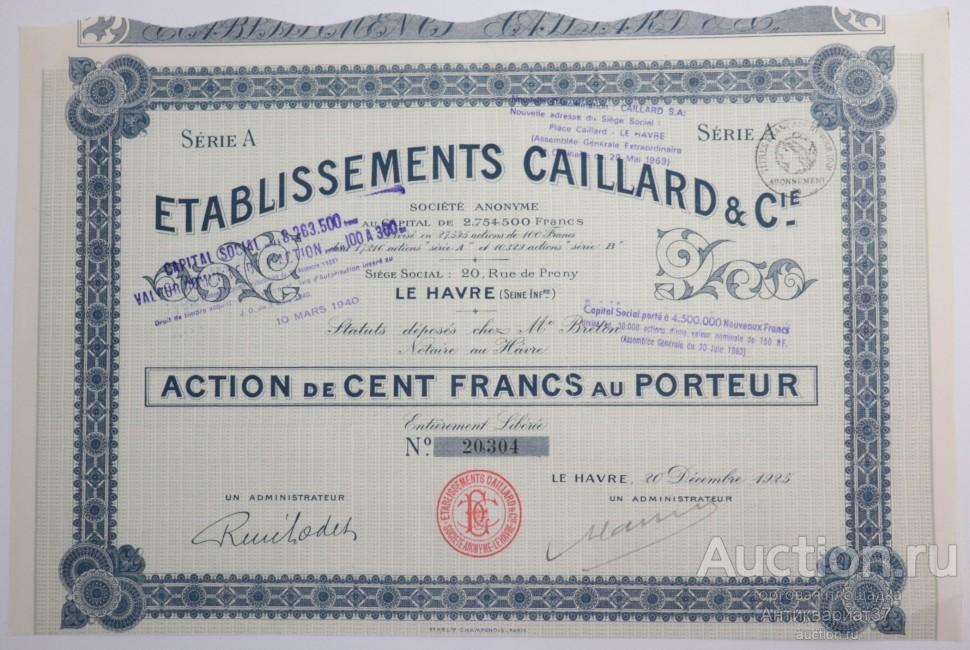 ETABLISSEMENTS CAILLARD & C
SÉRIE A
SÉRIE A
CAILLARD S.A.
Nouvelle adresse du Siège Social :
Place Caillard - LE HAVRE
(Assemblée Générale Extraordinaire
du 29 Mai 1969)
ABONNEMENT
ETABLISSEMENTS CAILLARD & CIE
SOCIÉTÉ ANONYME
AU CAPITAL DE 2.754.500 FRANCS
en 27.545 actions de 100 Francs
17.216 actions "série A" et 10.329 actions "série B"
CAPITAL SOCIAL 8.263.500
VALEUR ACTION 100 A 300
Droit de timbre acquitté d'autorisation inséré au
J. O.
10 MARS 1940
SIÈGE SOCIAL : 20, Rue de Prony
LE HAVRE (SEINE INFRE)
Capital Social porté à 4.500.000 Nouveaux Francs
30.000 actions d'une valeur nominale de 150 NF.
(Assemblée Générale du 20 Juin 1963)
Statuts déposés chez Me
Notaire au Hâvre
ACTION DE CENT FRANCS AU PORTEUR
Entièrement Libérée
No. 20.304
LE HAVRE, 20 Décembre 1925
UN ADMINISTRATEUR
UN ADMINISTRATEUR
ETABLISSEMENTS CAILLARD & CIE
SOCIÉTÉ ANONYME - LE HAVRE
ETABTS CHAMPENOIS, PARIS
Auction.ru
торговая площадка
Антиквариат37
auction.ru